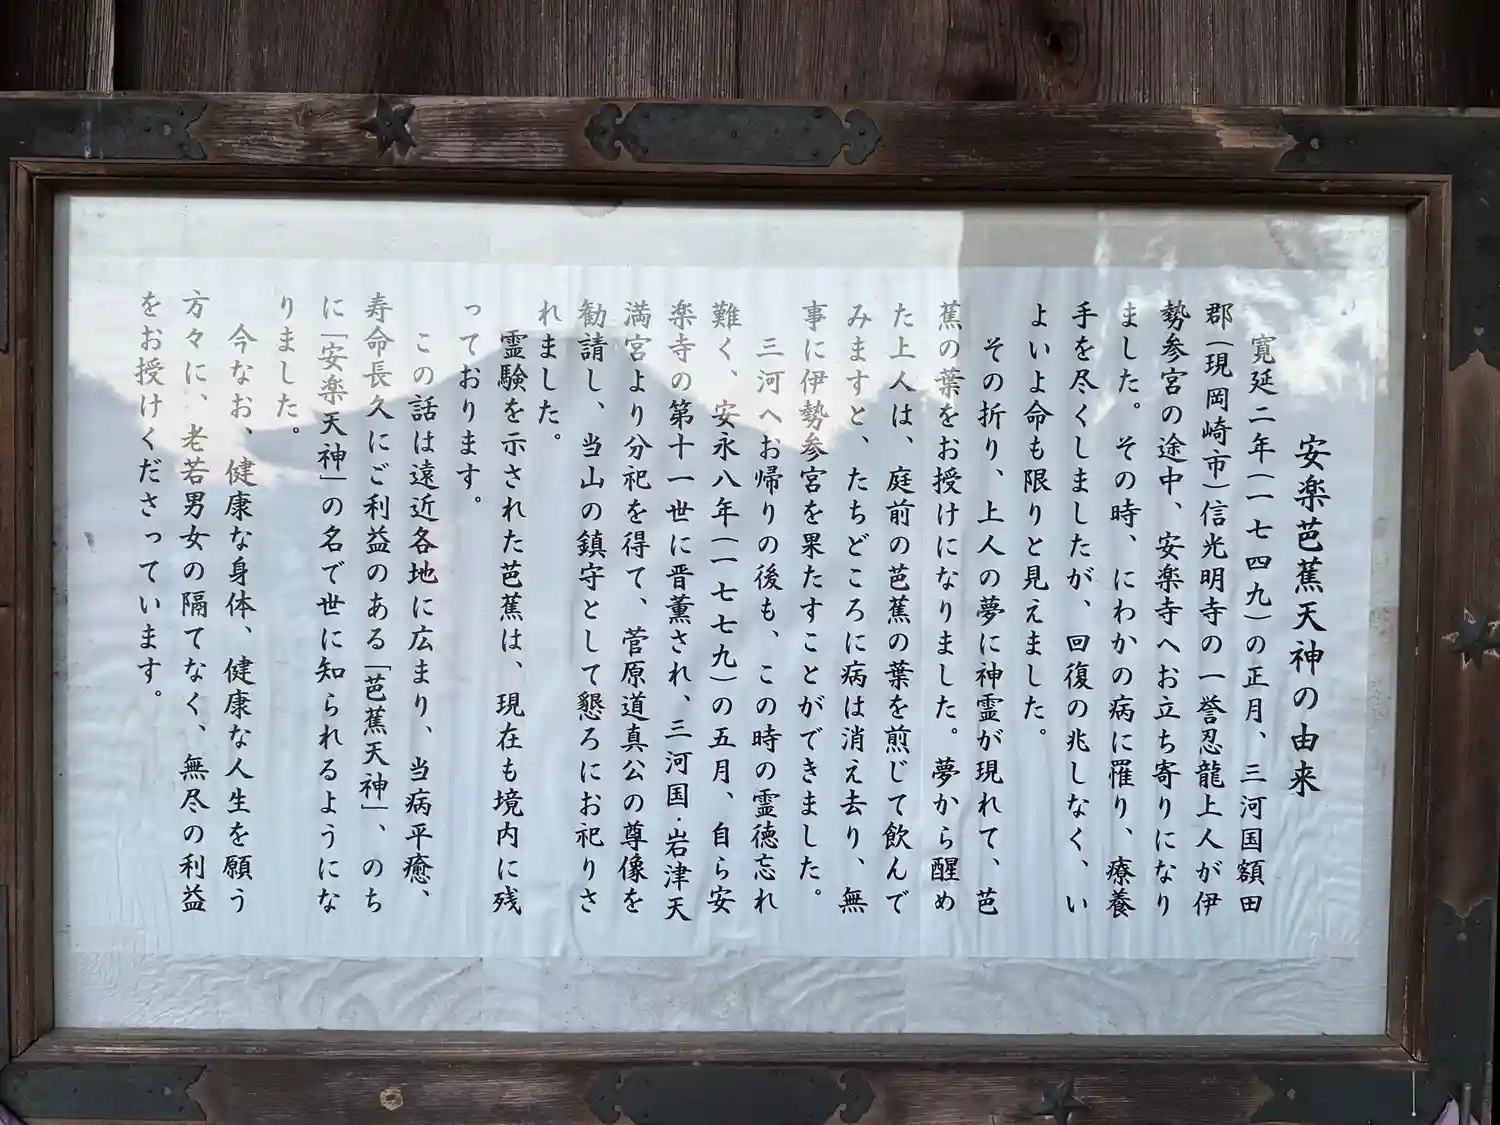 安楽芭蕉天神の由来
寛延二年(一七四九)の正月、三河国額田
郡(現岡崎市)信光明寺の一誉忍龍上人が伊
勢参宮の途中、安楽寺へお立ち寄りになり
ました。その時、にわかの病に罹り、療養
手を尽くしましたが、回復の兆しなく、い
よいよ命も限りと見えました。
その折り、上人の夢に神霊が現れて、芭
蕉の葉をお授けになりました。夢から醒め
た上人は、庭前の芭蕉の葉を煎じて飲んで
みますと、たちどころに病は消え去り、無
事に伊勢参宮を果たすことができました。
三河へお帰りの後も、この時の霊徳忘れ
難く、安永八年(一七七九)の五月、自ら安
楽寺の第十一世に晋董され、三河国・岩津天
満宮より分祀を得て、菅原道真公の尊像を
勧請し、当山の鎮守として懇ろにお祀りさ
れました。
霊験を示された芭蕉は、現在も境内に残
っております。
この話は遠近各地に広まり、当病平癒、
寿命長久にご利益のある「芭蕉天神」、のち
に「安楽天神」の名で世に知られるようにな
りました。
今なお、健康な身体、健康な人生を願う
方々に、老若男女の隔てなく、無尽の利益
をお授けくださっています。